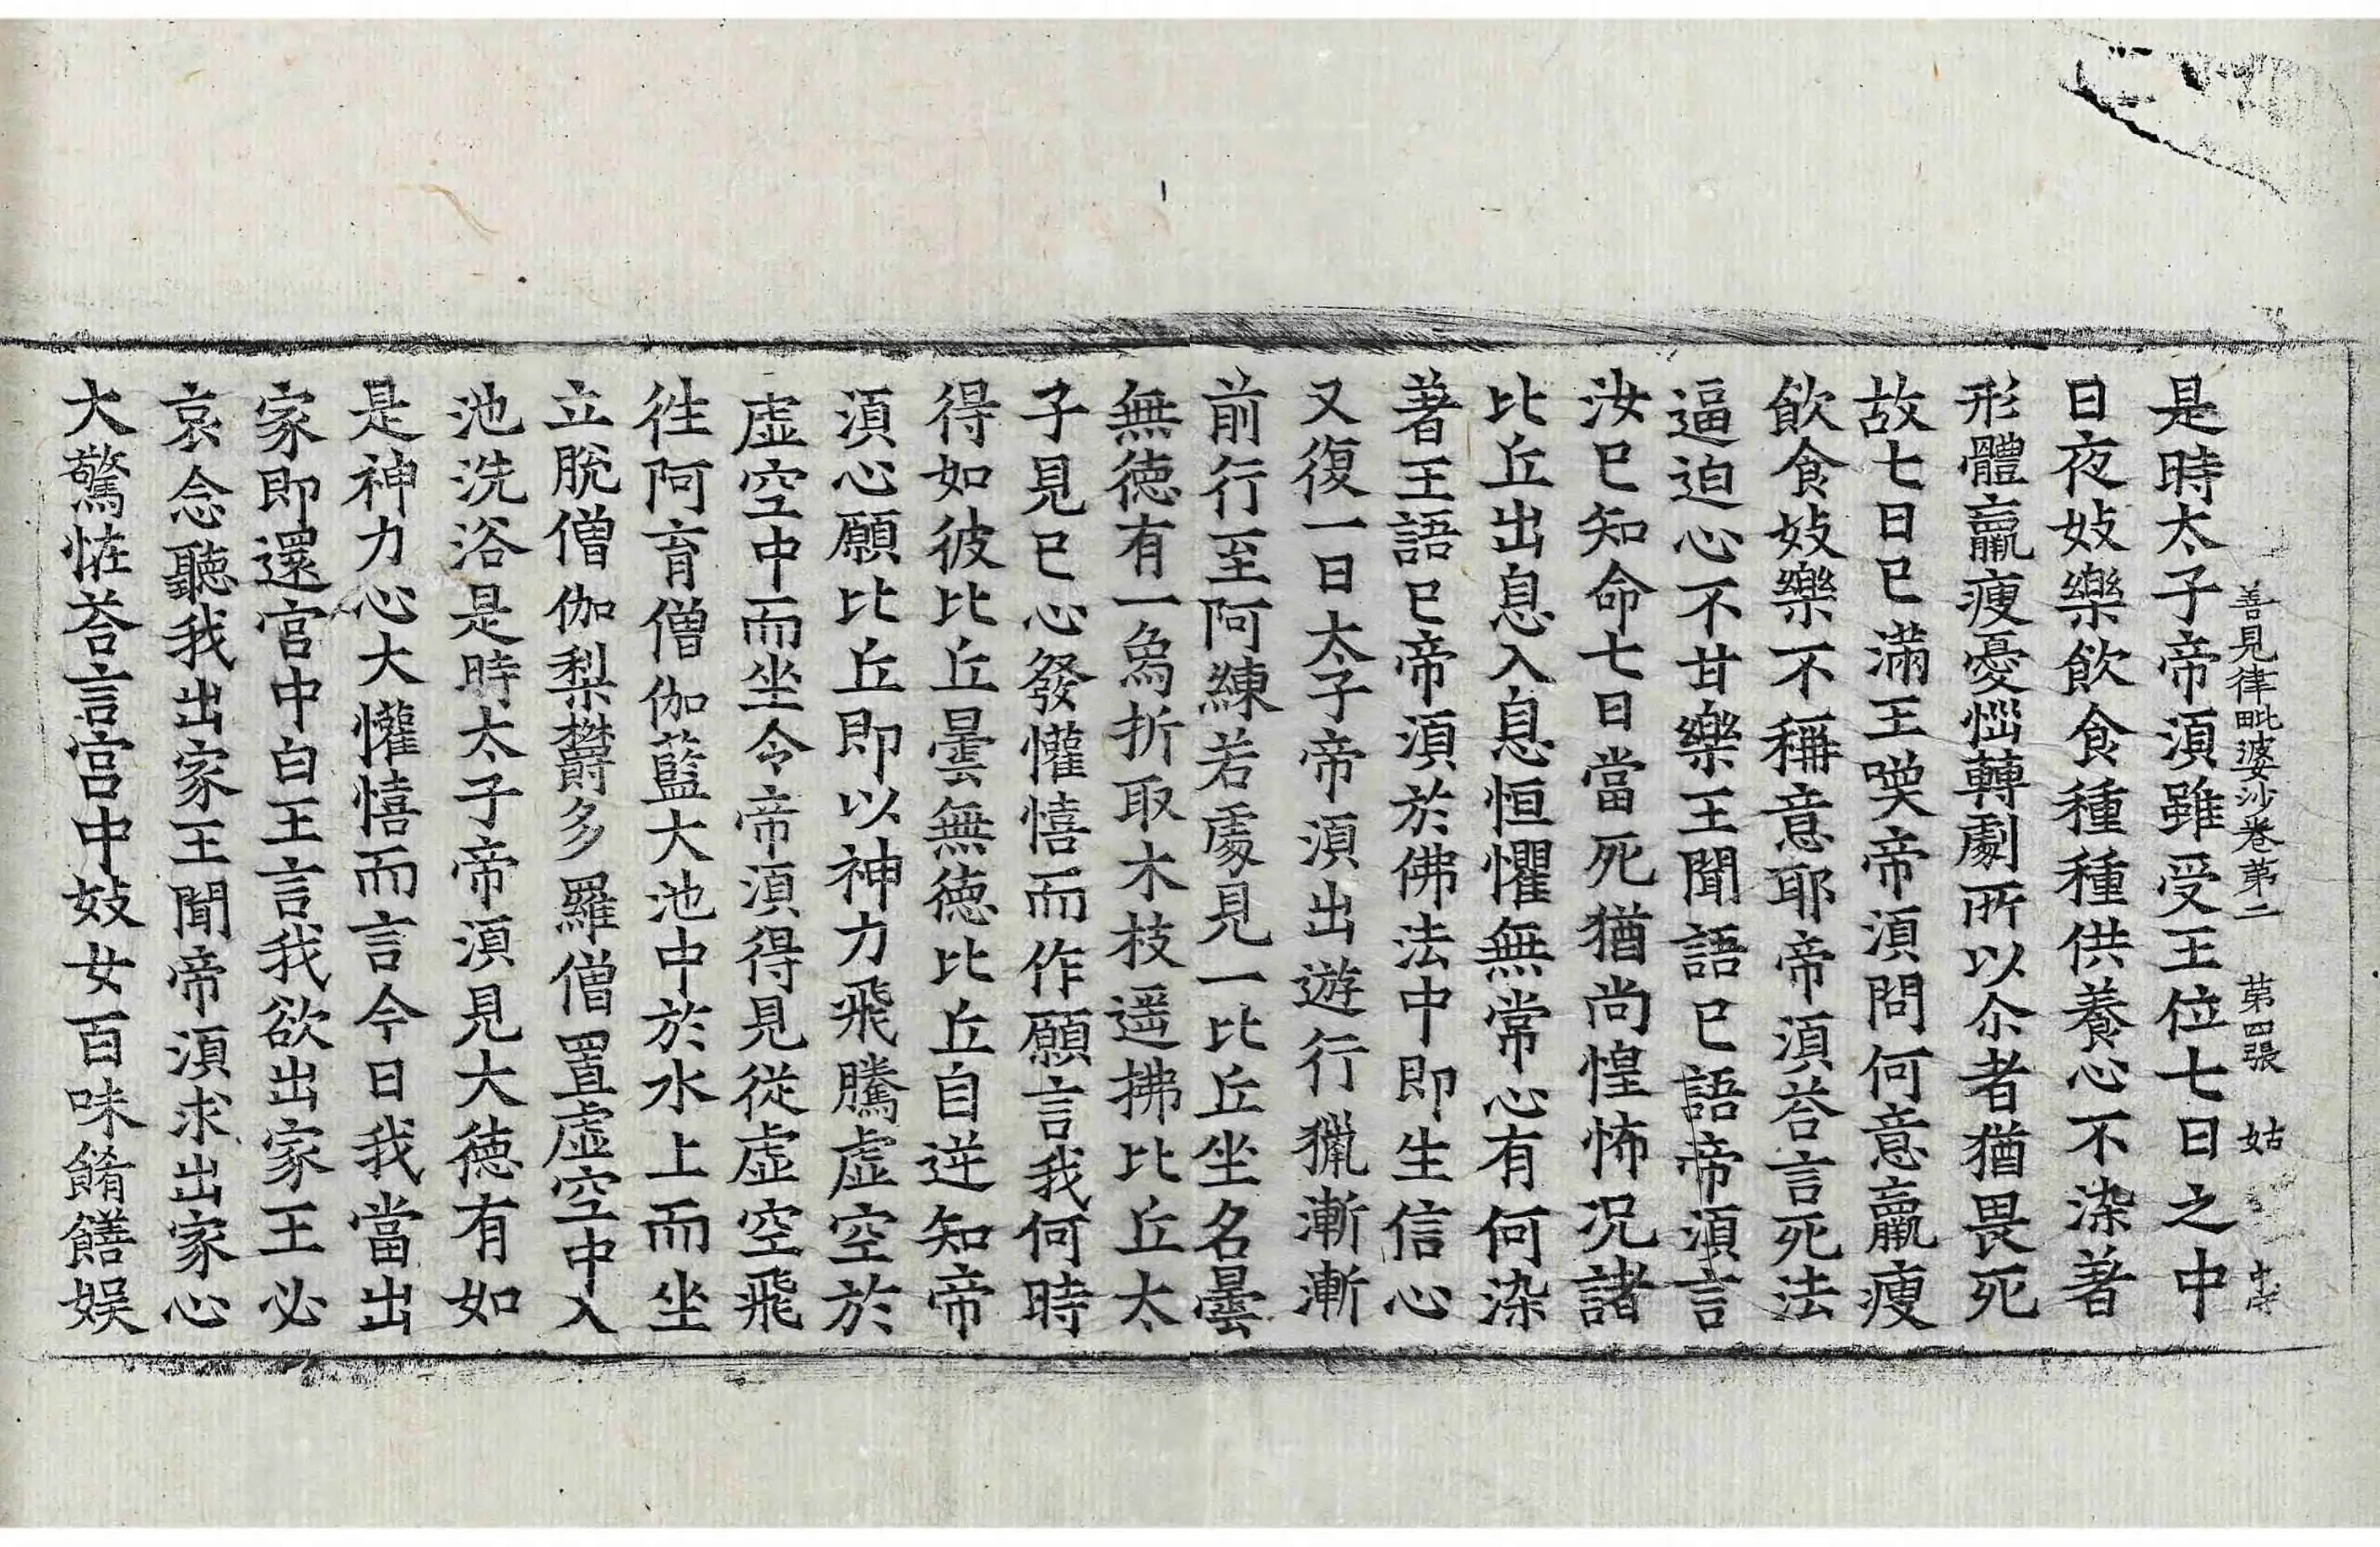 善見律毗婆沙卷第二　第四張　姑
是時太子帝須雖受王位七日之中
日夜妓樂飲食種種供養心不染著
形體羸瘦憂惱轉劇所以尒者猶畏死
故七日已滿王喚帝須問何意羸瘦
飲食妓樂不稱意耶帝須荅言死法
逼迫心不甘樂王聞語已語帝須言
汝已知命七日當死猶尚惶怖況諸
比丘出息入息恒懼無常心有何染
著王語已帝須於佛法中即生信心
又復一日太子帝須出遊行獵漸漸
前行至阿練若處見一比丘坐名曇
無德有一象折取木枝遥拂比丘太
子見已心發懽憘而作願言我何時
得如彼比丘曇無德比丘自逆知帝
須心願比丘即以神力飛騰虛空於
虛空中而坐令帝須得見從虛空飛
往阿育僧伽藍大池中於水上而坐
立脫僧伽梨欝多羅僧置虛空中入
池洗浴是時太子帝須見大德有如
是神力心大懽憘而言今日我當出
家即還宮中白王言我欲出家王必
哀念聽我出家王聞帝須求出家心
大驚恠荅言宮中妓女百味餚饍娛